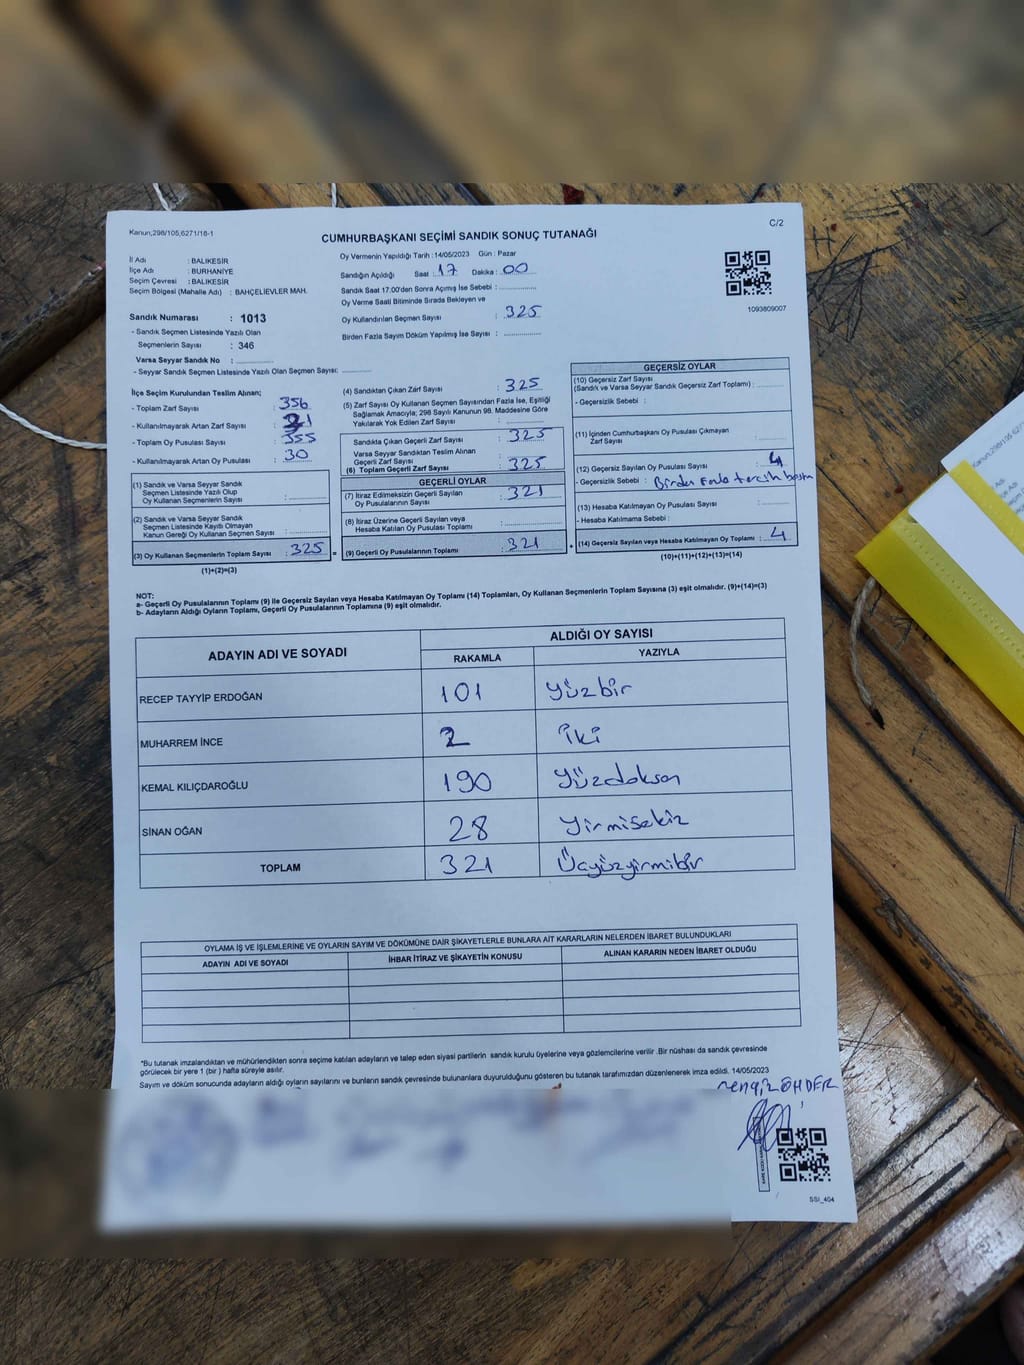 Kanun;298/105,6271/18-1
C/2
CUMHURBAŞKANI SEÇİMİ SANDIK SONUÇ TUTANAĞI
İl Adı : BALIKESİR
İlçe Adı : BURHANİYE
Seçim Çevresi : BALIKESİR
Seçim Bölgesi (Mahalle Adı) : BAHÇELİEVLER MAH.
Sandık Numarası : 1013
- Sandık Seçmen Listesinde Yazılı Olan
Seçmenlerin Sayısı : 346
Varsa Seyyar Sandık No :
- Seyyar Sandık Seçmen Listesinde Yazılı Olan Seçmen Sayısı:
Oy Vermenin Yapıldığı Tarih : 14/05/2023 Gün : Pazar
Sandığın Açıldığı Saat : 17 Dakika : 00
Sandık Saat 17.00'den Sonra Açımış İse Sebebi :
Oy Verme Saati Bitiminde Sırada Bekleyen ve
Oy Kullandırılan Seçmen Sayısı : 325
Birden Fazla Sayım Döküm Yapılmış İse Sayısı :
1093809007
İlçe Seçim Kurulundan Teslim Alınan;
- Toplam Zarf Sayısı : 356
- Kullanılmayarak Artan Zarf Sayısı : 31
- Toplam Oy Pusulası Sayısı : 355
- Kullanılmayarak Artan Oy Pusulası : 30
(1) Sandık ve Varsa Seyyar Sandık
Seçmen Listesinde Yazılı Olup
Oy Kullanan Seçmenlerin Sayısı :
(2) Sandık ve Varsa Seyyar Sandık
Seçmen Listesinde Kayıtlı Olmayan
Kanun Gereği Oy Kullanan Seçmen Sayısı :
(3) Oy Kullanan Seçmenlerin Toplam Sayısı : 325
(1)+(2)=(3)
(4) Sandıktan Çıkan Zarf Sayısı : 325
(5) Zarf Sayısı Oy Kullanan Seçmen Sayısından Fazla İse, Eşitliği
Sağlamak Amacıyla; 298 Sayılı Kanunun 98. Maddesine Göre
Yakılarak Yok Edilen Zarf Sayısı :
Sandıkta Çıkan Geçerli Zarf Sayısı : 325
Varsa Seyyar Sandıktan Teslim Alınan
Geçerli Zarf Sayısı :
(6) Toplam Geçerli Zarf Sayısı : 325
GEÇERLİ OYLAR
(7) İtiraz Edilmeksizin Geçerli Sayılan
Oy Pusulalarının Sayısı : 321
(8) İtiraz Üzerine Geçerli Sayılan veya
Hesaba Katılan Oy Pusulası Toplamı :
(9) Geçerli Oy Pusulalarının Toplamı : 321
GEÇERSİZ OYLAR
(10) Geçersiz Zarf Sayısı
(Sandık ve Varsa Seyyar Sandık Geçersiz Zarf Toplamı) :
- Geçersizlik Sebebi :
(11) İçinden Cumhurbaşkanı Oy Pusulası Çıkmayan
Zarf Sayısı :
(12) Geçersiz Sayılan Oy Pusulası Sayısı : 4
- Geçersizlik Sebebi : Birden Fazla tercih
(13) Hesaba Katılmayan Oy Pusulası Sayısı :
- Hesaba Katılmama Sebebi :
(14) Geçersiz Sayılan veya Hesaba Katılmayan Oy Toplamı : 4
(10)+(11)+(12)+(13)=(14)
NOT:
a- Geçerli Oy Pusulalarının Toplamı (9) ile Geçersiz Sayılan veya Hesaba Katılmayan Oy Toplamı (14) Toplamları, Oy Kullanan Seçmenlerin Toplam Sayısına (3) eşit olmalıdır. (9)+(14)=(3)
b- Adayların Aldığı Oyların Toplamı, Geçerli Oy Pusulalarının Toplamına (9) eşit olmalıdır.
ADAYIN ADI VE SOYADI
ALDIĞI OY SAYISI
RAKAMLA YAZIYLA
RECEP TAYYİP ERDOĞAN 101 yüzbir
MUHARREM İNCE 2 iki
KEMAL KILIÇDAROĞLU 190 yüzdoksan
SİNAN OĞAN 28 yirmisekiz
TOPLAM 321 Üçyüzyirmibir
OYLAMA İŞ VE İŞLEMLERİNE VE OYLARIN SAYIM VE DÖKÜMÜNE DAİR ŞİKAYETLERLE BUNLARA AİT KARARLARIN NELERDEN İBARET BULUNDUKLARI
ADAYIN ADI VE SOYADI İHBAR İTİRAZ VE ŞİKAYETİN KONUSU ALINAN KARARIN NEDEN İBARET OLDUĞU
*Bu tutanak imzalandıktan ve mühürlendikten sonra seçime katılan adayların ve talep eden siyasi partilerin sandık kurulu üyelerine veya gözlemcilerine verilir .Bir nüshası da sandık çevresinde
görülecek bir yere 1 (bir ) hafta süreyle asılır.
Sayım ve döküm sonucunda adayların aldığı oyların sayılarını ve bunların sandık çevresinde bulunanlara duyurulduğunu gösteren bu tutanak tarafımızdan düzenlenerek imza edildi. 14/05/2023
SSI_404